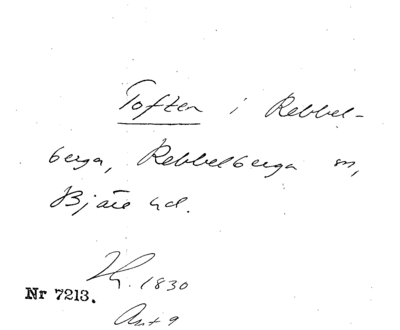 Toften i Rebbel-
berga, Rebbelberga sn,
Bjäre hd.
1830
Nr 7213.
Akt 9